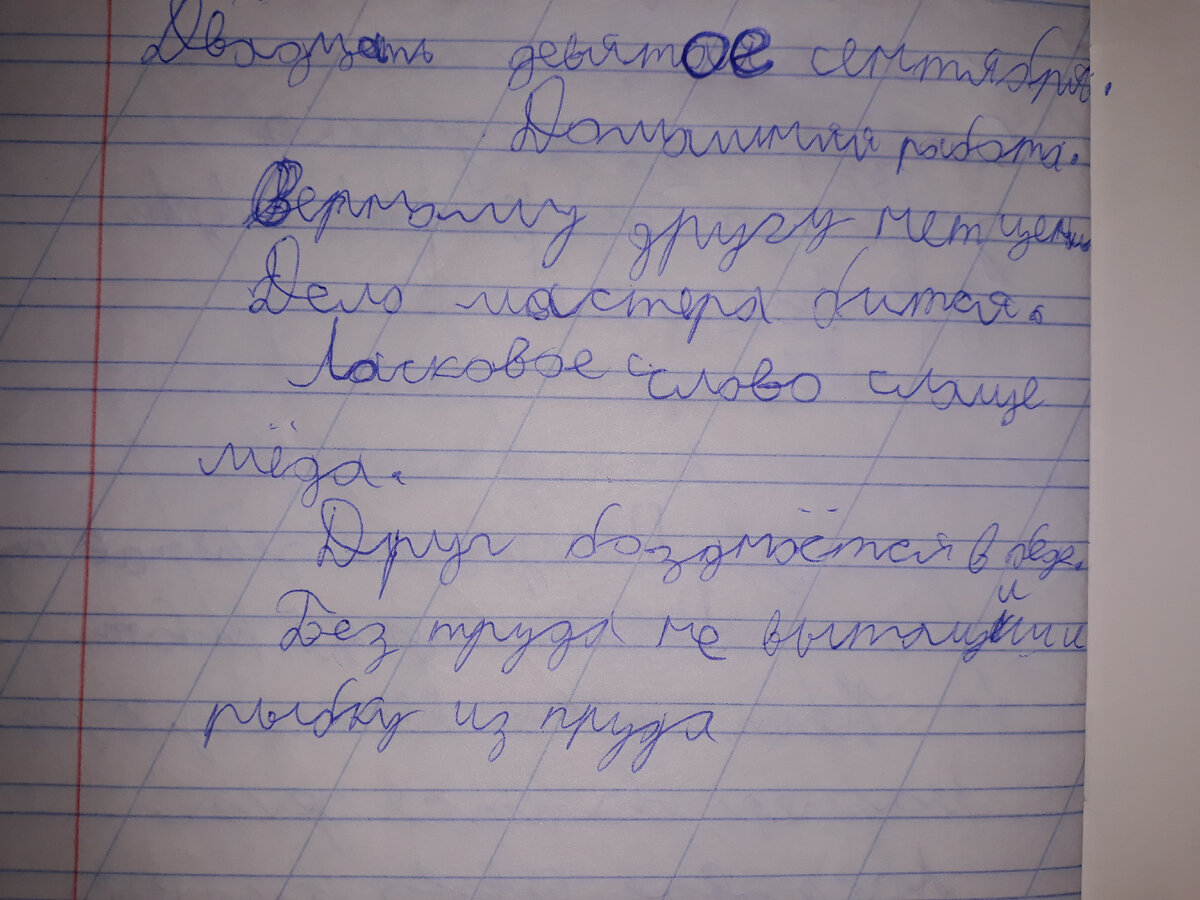 Двадцать девятое сентября.
Домашняя работа.
Верному другу нет цены
Дело мастера битея.
Ласковое слово слаще
мёда.
Друг бозднаётся в беде.
Без труда не вытащиши
рыбку из пруда